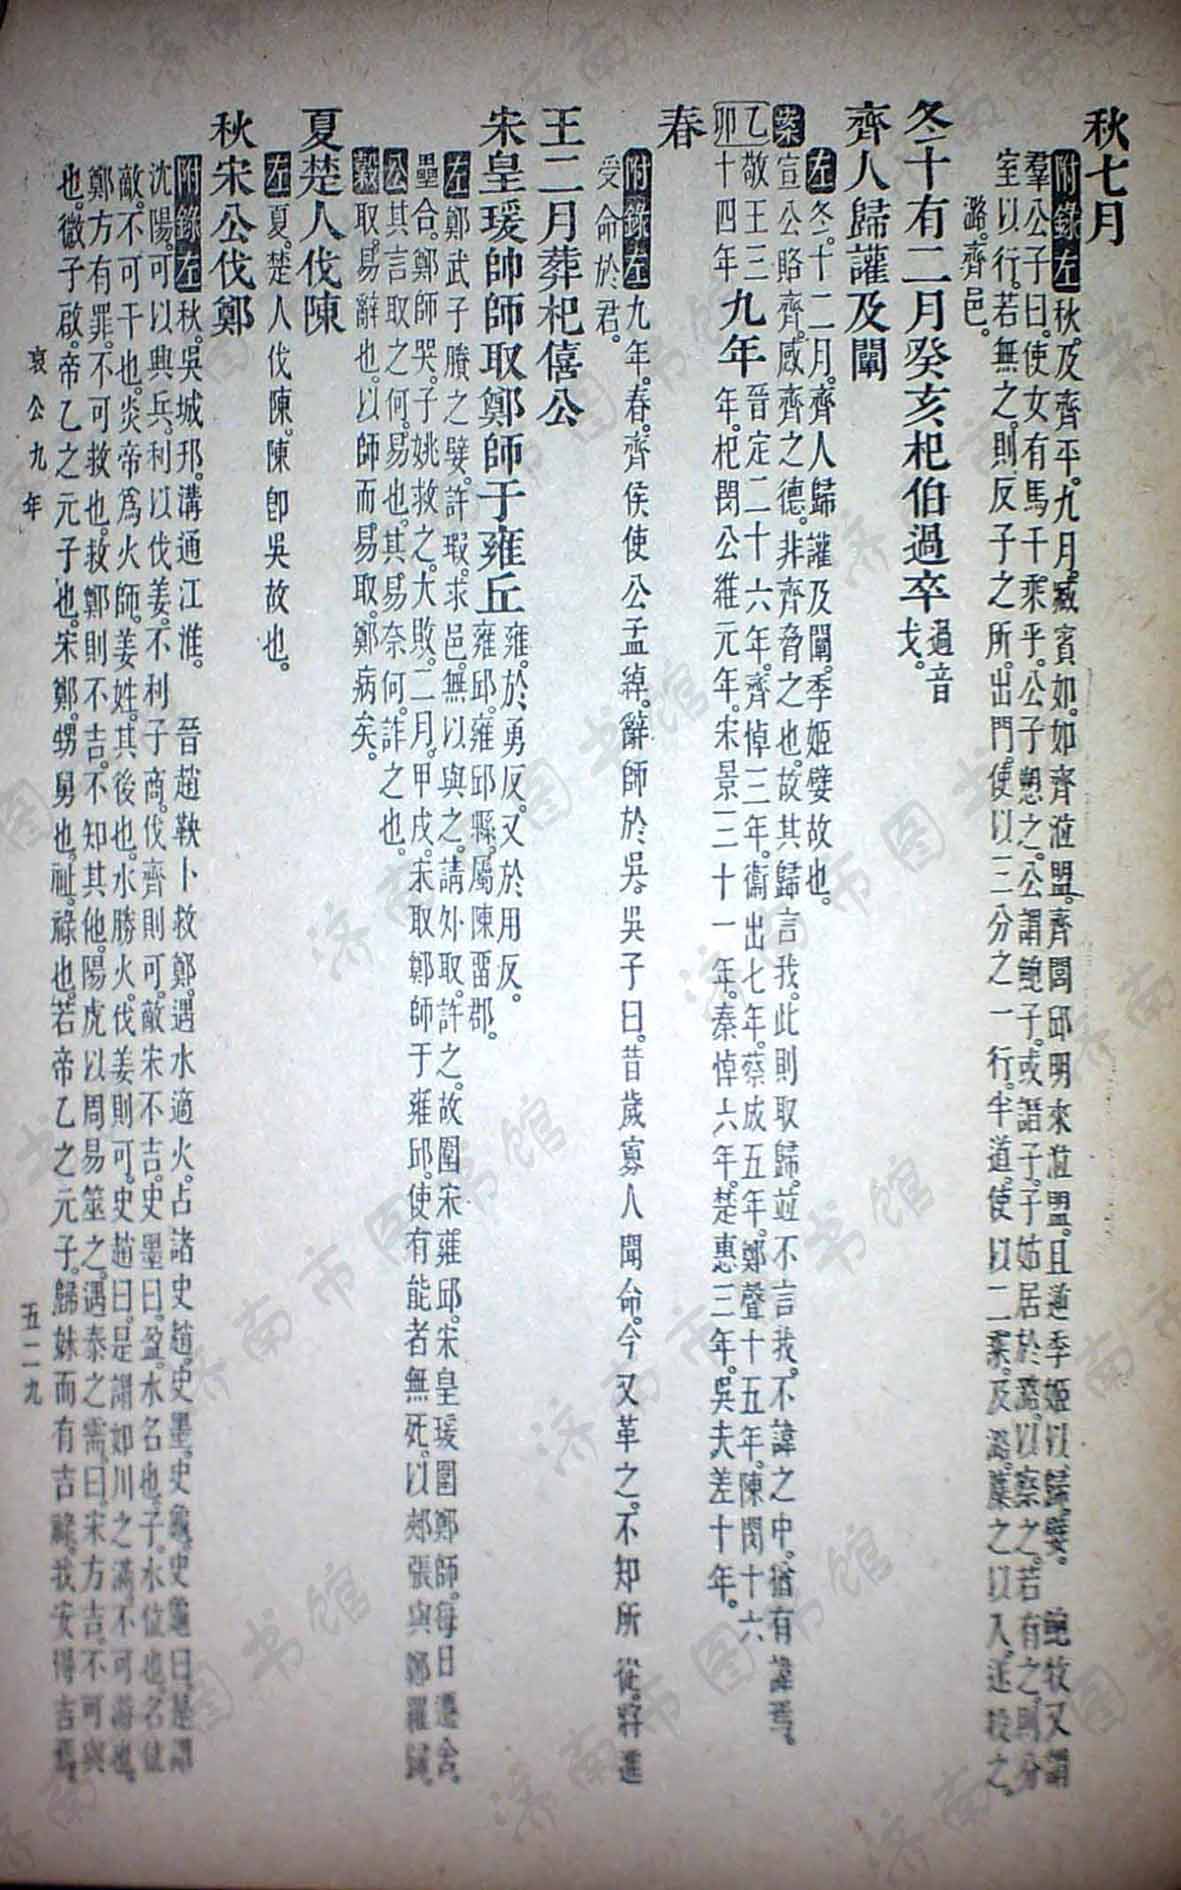 秋七月
附錄左秋。及齊平。九月。臧賓如。如齊涖盟。齊閭邱明來涖盟。且逆季姬以歸。嬖。　鮑牧又謂
羣公子曰。使女有馬千乘乎。公子愬之。公謂鮑子。或譖子。子姑居於潞。以察之。若有之。則分
室以行。若無之。則反子之所。出門。使以三分之一行。半道。使以二乘。及潞。麇之以入。遂殺之。
潞。齊邑。
冬十有二月癸亥杞伯過卒過音
戈。
齊人歸讙及闡
左冬。十二月。齊人歸讙及闡。季姬嬖故也。
案宣公賂齊。感齊之德。非齊脅之也。故其歸言我。此則取歸。並不言我。不諱之中。猶有諱焉。
乙敬王三九年晉定二十六年。齊悼三年。衞出七年。蔡成五年。鄭聲十五年。陳閔十六
卯十四年年。杞閔公維元年。宋景三十一年。秦悼六年。楚惠三年。吳夫差十年。
春
附錄左九年。春。齊侯使公孟綽。辭師於吳。吳子曰。昔歲寡人聞命。今又革之。不知所從。將進
受命於君。
王二月葬杞僖公
宋皇瑗帥師取鄭師于雍丘雍。於勇反。又於用反。
雍邱。雍邱縣。屬陳畱郡。
左鄭武子賸之嬖。許瑕。求邑。無以與之。請外取。許之。故圍宋。雍邱。宋皇瑗圍鄭師。每日遷舍。
壘合。鄭師哭。子姚救之。大敗。二月。甲戌。宋取鄭師于雍邱。使有能者無死。以郟張與鄭羅歸。
公其言取之何。易也。其易奈何。詐之也。
穀取。易辭也。以師而易取。鄭病矣。
夏楚人伐陳
左夏。楚人伐陳。陳卽吳故也。
秋宋公伐鄭
附錄左秋。吳城邗。溝通江淮。　晉趙鞅卜救鄭。遇水適火。占諸史趙。史墨。史龜。史龜曰。是謂
沈陽。可以興兵。利以伐姜。不利子商。伐齊則可。敵宋不吉。史墨曰。盈。水名也。子。水位也。名位
敵。不可干也。炎帝爲火師。姜姓。其後也。水勝火。伐姜則可。史趙曰。是謂如川之滿。不可游也。
鄭方有罪。不可救也。救鄭則不吉。不知其他。陽虎以周易筮之。遇泰之需。曰。宋方吉。不可與
也。微子啟。帝乙之元子也。宋鄭。甥舅也。祉。祿也。若帝乙之元子。歸妹而有吉祿。我安得吉焉。
哀公九年
五二九